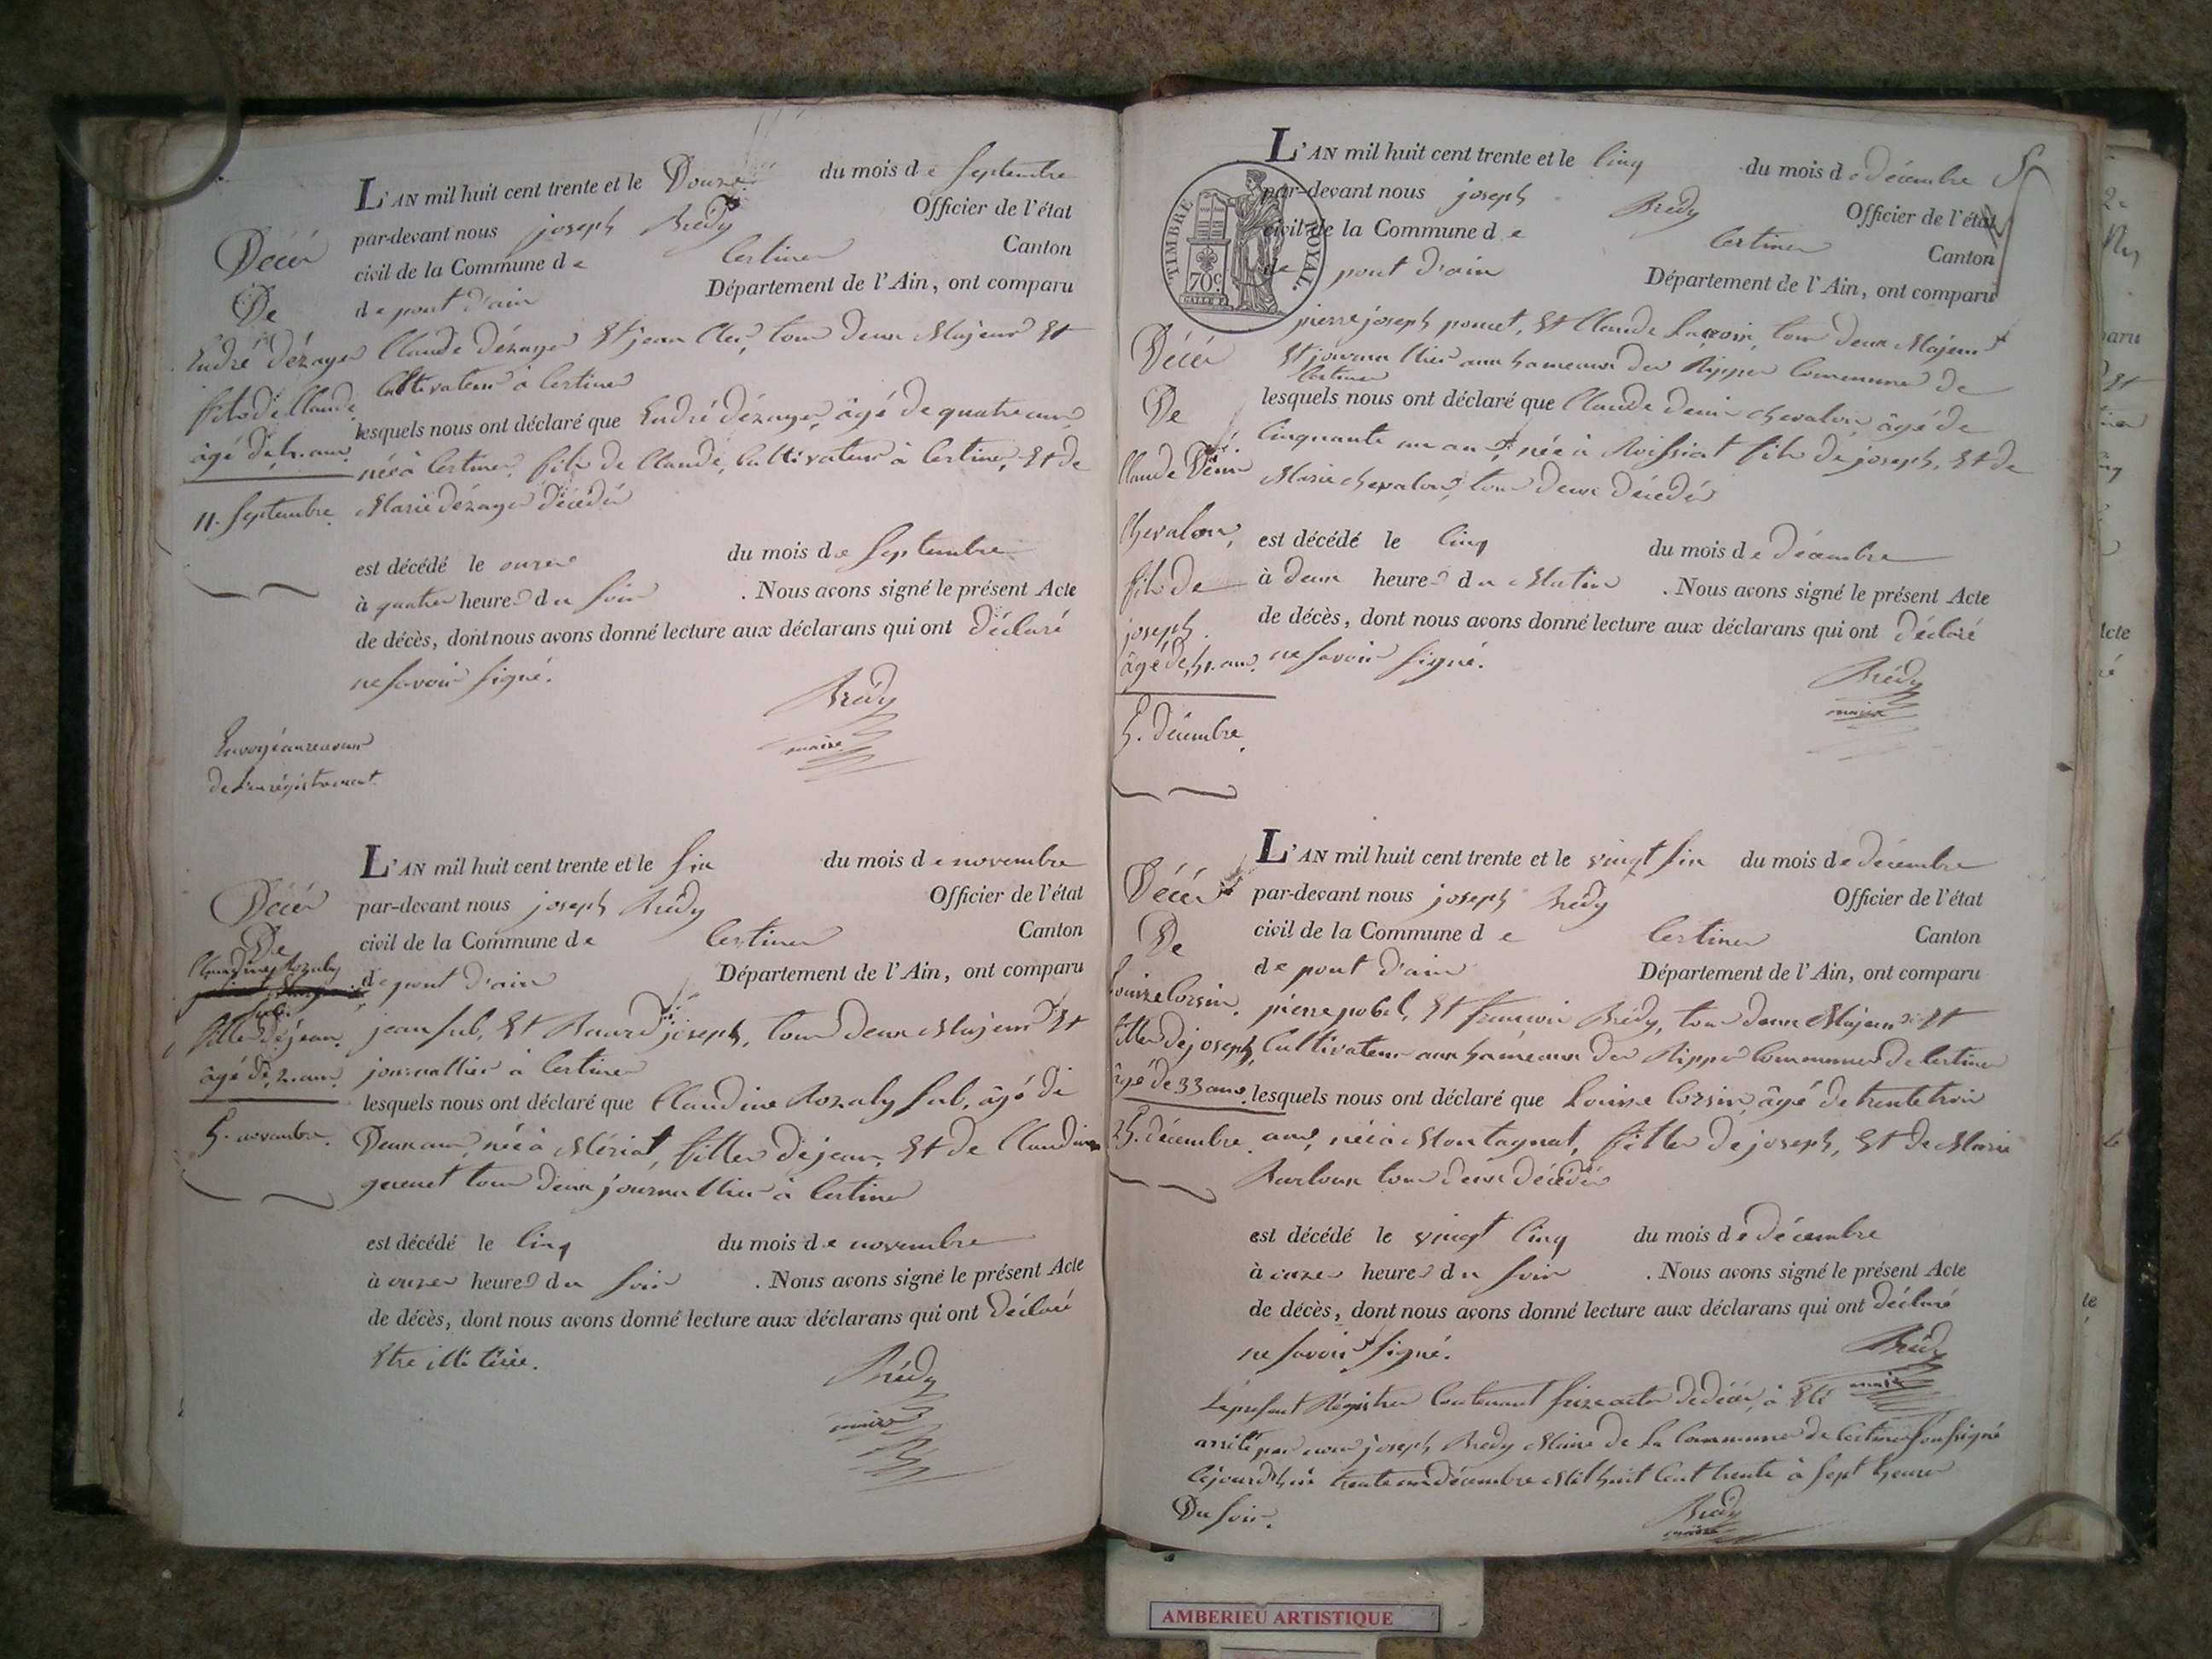 L'AN mil huit cent trente et le Douze du mois de Septembre
par-devant nous joseph Brédy Officier de l'état
civil de la Commune de Certines Canton
de pont d'ain Département de l'Ain, ont comparu
Claude dézayes Et jean Cler, tous deux Majeurs Et
Cultivateurs à Certines
lesquels nous ont déclaré que André dézayes, âgé de quatre ans
née à Certines, fils de Claude, Cultivateur à Certines, Et de
Marie dézayes décédés
est décédé le onze du mois de Septembre
à quatre heures du soir . Nous avons signé le présent Acte
de décès, dont nous avons donné lecture aux déclarans qui ont déclaré
ne savoir signé.
Brédy
maire
Décès
De
André dézayes
fils de Claude
âgé de 4. ans
11. Septembre
Envoyé au receveur
de L'enrégistrement
L'AN mil huit cent trente et le six du mois de novembre
par-devant nous joseph Brédy Officier de l'état
civil de la Commune de Certines Canton
de pont d'ain Département de l'Ain, ont comparu
jean sub, Et joseph, tous deux Majeurs Et
journallier à Certines
lesquels nous ont déclaré que Claudine Rozaly sub, âgé de
Deux ans, née à Mériat, fille de jean, Et de Claudine
gerenet tous deux journallier à Certines
est décédé le Cinq du mois de novembre
à onze heures du soir . Nous avons signé le présent Acte
de décès, dont nous avons donné lecture aux déclarans qui ont déclaré
Etre illitérés.
Brédy
maire
Décès
De
Claudine Rozaly
sub.
fille de jean
âgé de 2. ans
5. novembre.
TIMBRE ROYAL.
70c
L'AN mil huit cent trente et le Cinq du mois de décembre
par-devant nous joseph Brédy Officier de l'état
civil de la Commune de Certines Canton
de pont d'ain Département de l'Ain, ont comparu
pierre joseph poncet, Et Claude Lacroix, tous deux Majeurs
Et journallier aux hameaux des Rippes Commune de
Certines
lesquels nous ont déclaré que Claude denis Chevalon, âgé de
Cinquante un ans, née à Roissiat fils de joseph, Et de
Marie Chevalon, tous deux décédés
est décédé le Cinq du mois de décembre
à deux heures du Matin . Nous avons signé le présent Acte
de décès, dont nous avons donné lecture aux déclarans qui ont déclaré
ne savoir signé.
Brédy
maire
Décès
De
Claude Denis
Chevalon,
fils de
joseph.
âgé de 51. ans.
5. décembre.
L'AN mil huit cent trente et le vingt six du mois de décembre
par-devant nous joseph Brédy Officier de l'état
civil de la Commune de Certines Canton
de pont d'ain Département de l'Ain, ont comparu
pierre pobel, Et françois Brédy, tous deux Majeurs Et
Cultivateurs aux hameaux des Rippes Commune de Certines
lesquels nous ont déclaré que Louise Corsin, âgé de trente trois
ans, née à Montagnat, fille de joseph, Et de Marie
tous deux décédés
est décédé le vingt Cinq du mois de décembre
à onze heures du soir . Nous avons signé le présent Acte
de décès, dont nous avons donné lecture aux déclarans qui ont déclaré
ne savoir signé.
Brédy
maire
Décès
De
Louise Corsin,
fille de joseph,
âgé de 33 ans
25. décembre
Le présent Régistre Contenant seize actes de décès, a Eté
arrêté par nous joseph Brédy Maire de la Commune de Certines soussigné
Cejourd'huis trente un décembre Mil huit Cent trente à sept heures
Du soir.
Brédy
maire
AMBERIEU ARTISTIQUE